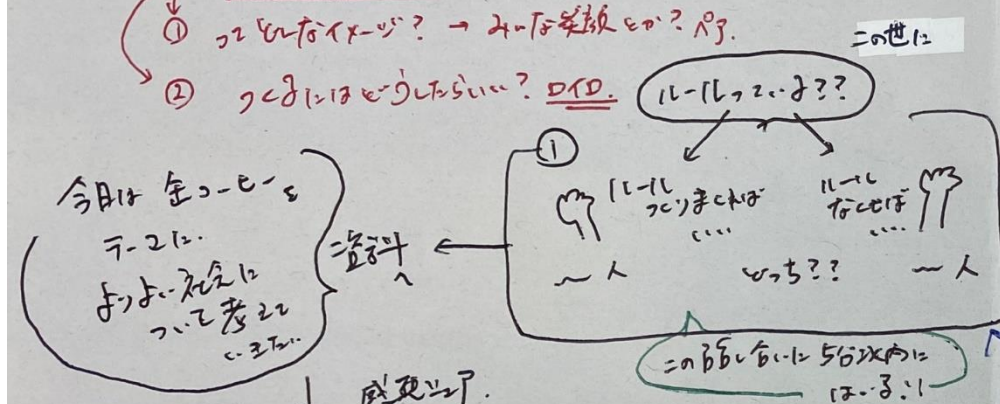 ① ってどんなイメージ? → みんな笑顔とか? ペア.
② つくるにはどうしたらいい? ロイロ.
この世に
ルールっている??
①
ルール
つくりまくれば
‥‥
ルール
なくせば
‥‥
〜人
どっち??
〜人
今日は 缶コーヒーを
テーマに..
よりよい社会に
ついて考えて
いきたい
資料
へ
この話し合いに 5分以内に
はいる!!
感想シェア.